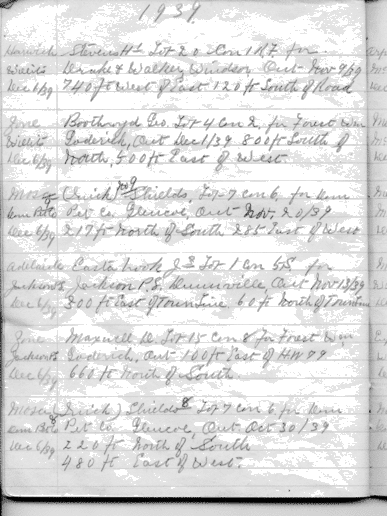 1939
Harwich Stevens H. Lot 20 Con 1 R.F. for
Waiits Drake & Walker, Windsor, Ont Nov 9/39
Dec 6/39 740 ft West of East 120 ft South of Road
Boothroyd Geo. Lot 4 Con 2, for Forest Wm
Waiits Goderich, Ont Dec 1/39 800 ft South of
Dec 6/39 North, 500 ft East of West.
Mosa (Quick) no 9 Shields, Lot 7 Con 6, for
Pet Co Glencoe, Ont Nov. 20/39
Dec 6/39 217 ft North of South 285 East of West
Adelaide Lot 1 Con 5 S for
Jackson P.S. Dunnville, Ont Nov 13/39
Dec 6/39 300 ft East of Town Line 60 ft North of Town Line
Maxwell D. Lot 15 Con 8 for Forest Wm
Goderich, Ont 100 ft East of HW 79
Dec 6/39 660 ft North of South.
Mosa (Quick) Shields 8 Lot 7 Con 6 for
Pet Co Glencoe, Ont. Oct 30/39
Dec 6/39 220 ft North of South
480 ft East of West.